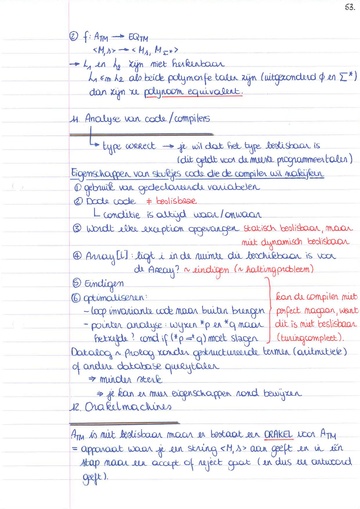 53.
② f: A_TM → EQ_TM
<M,s> → <M_s, M_Σ*>
→ L₁ en L₂ zijn niet herkenbaar
L₁ ≤m L₂ als beide polynomische talen zijn (uitgezonderd ∅ en Σ*)
dan zijn ze polynoom equivalent.
11. Analyse van code/compilers
→ type correct → je wil dat het type beslisbaar is
(dit geldt voor de meeste programmeertalen)
Eigenschappen van stukjes code die de compiler wil nakijken.
① gebruik van gedeclareerde variabelen
② Dode code ≠ beslisbaar
↳ conditie is altijd waar/onwaar
③ Wordt elke exception opgevangen statisch beslisbaar, maar
niet dynamisch beslisbaar
④ Array[i]: ligt i in de ruimte die beschikbaar is voor
de Array? ~ eindigen (~ haltingproblem)
⑤ Eindigen
⑥ optimaliseren:
- loop invariante code naar buiten brengen
- pointer analyse: wijzen *p en *q naar
hetzelfde? cond if (*p == *q) moet slagen
kan de compiler niet
perfect nagaan, want
dit is niet beslisbaar
(turingcompleet).
Datalog ~ Prolog zonder gestructureerde termen (aritmetiek)
of andere database querytalen
→ minder sterk
→ je kan er meer eigenschappen rond bewijzen
12. Orakelmachines
A_TM is niet beslisbaar maar er bestaat een ORAKEL voor A_TM
= apparaat waar je een string <M,s> aan geeft en in één
stap naar een accept of reject gaat (en dus een antwoord
geeft).